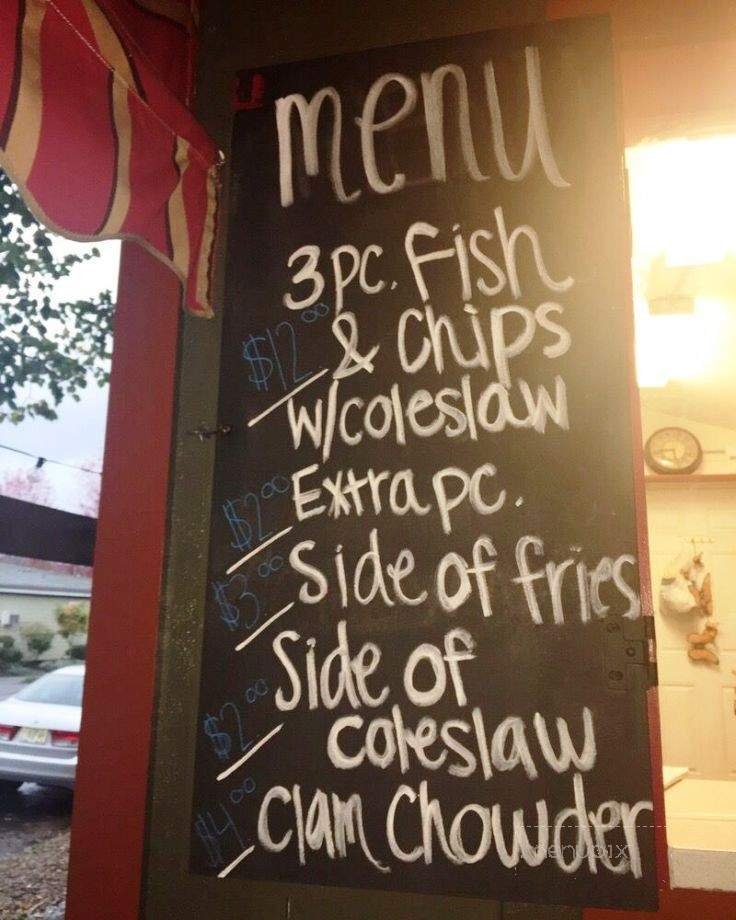 menu
3 pc. Fish
$12.00 & Chips
w/coleslaw
$2.00 Extra pc.
$3.00 Side of fries
Side of
$2.00 coleslaw
$4.00 Clam Chowder
menupix